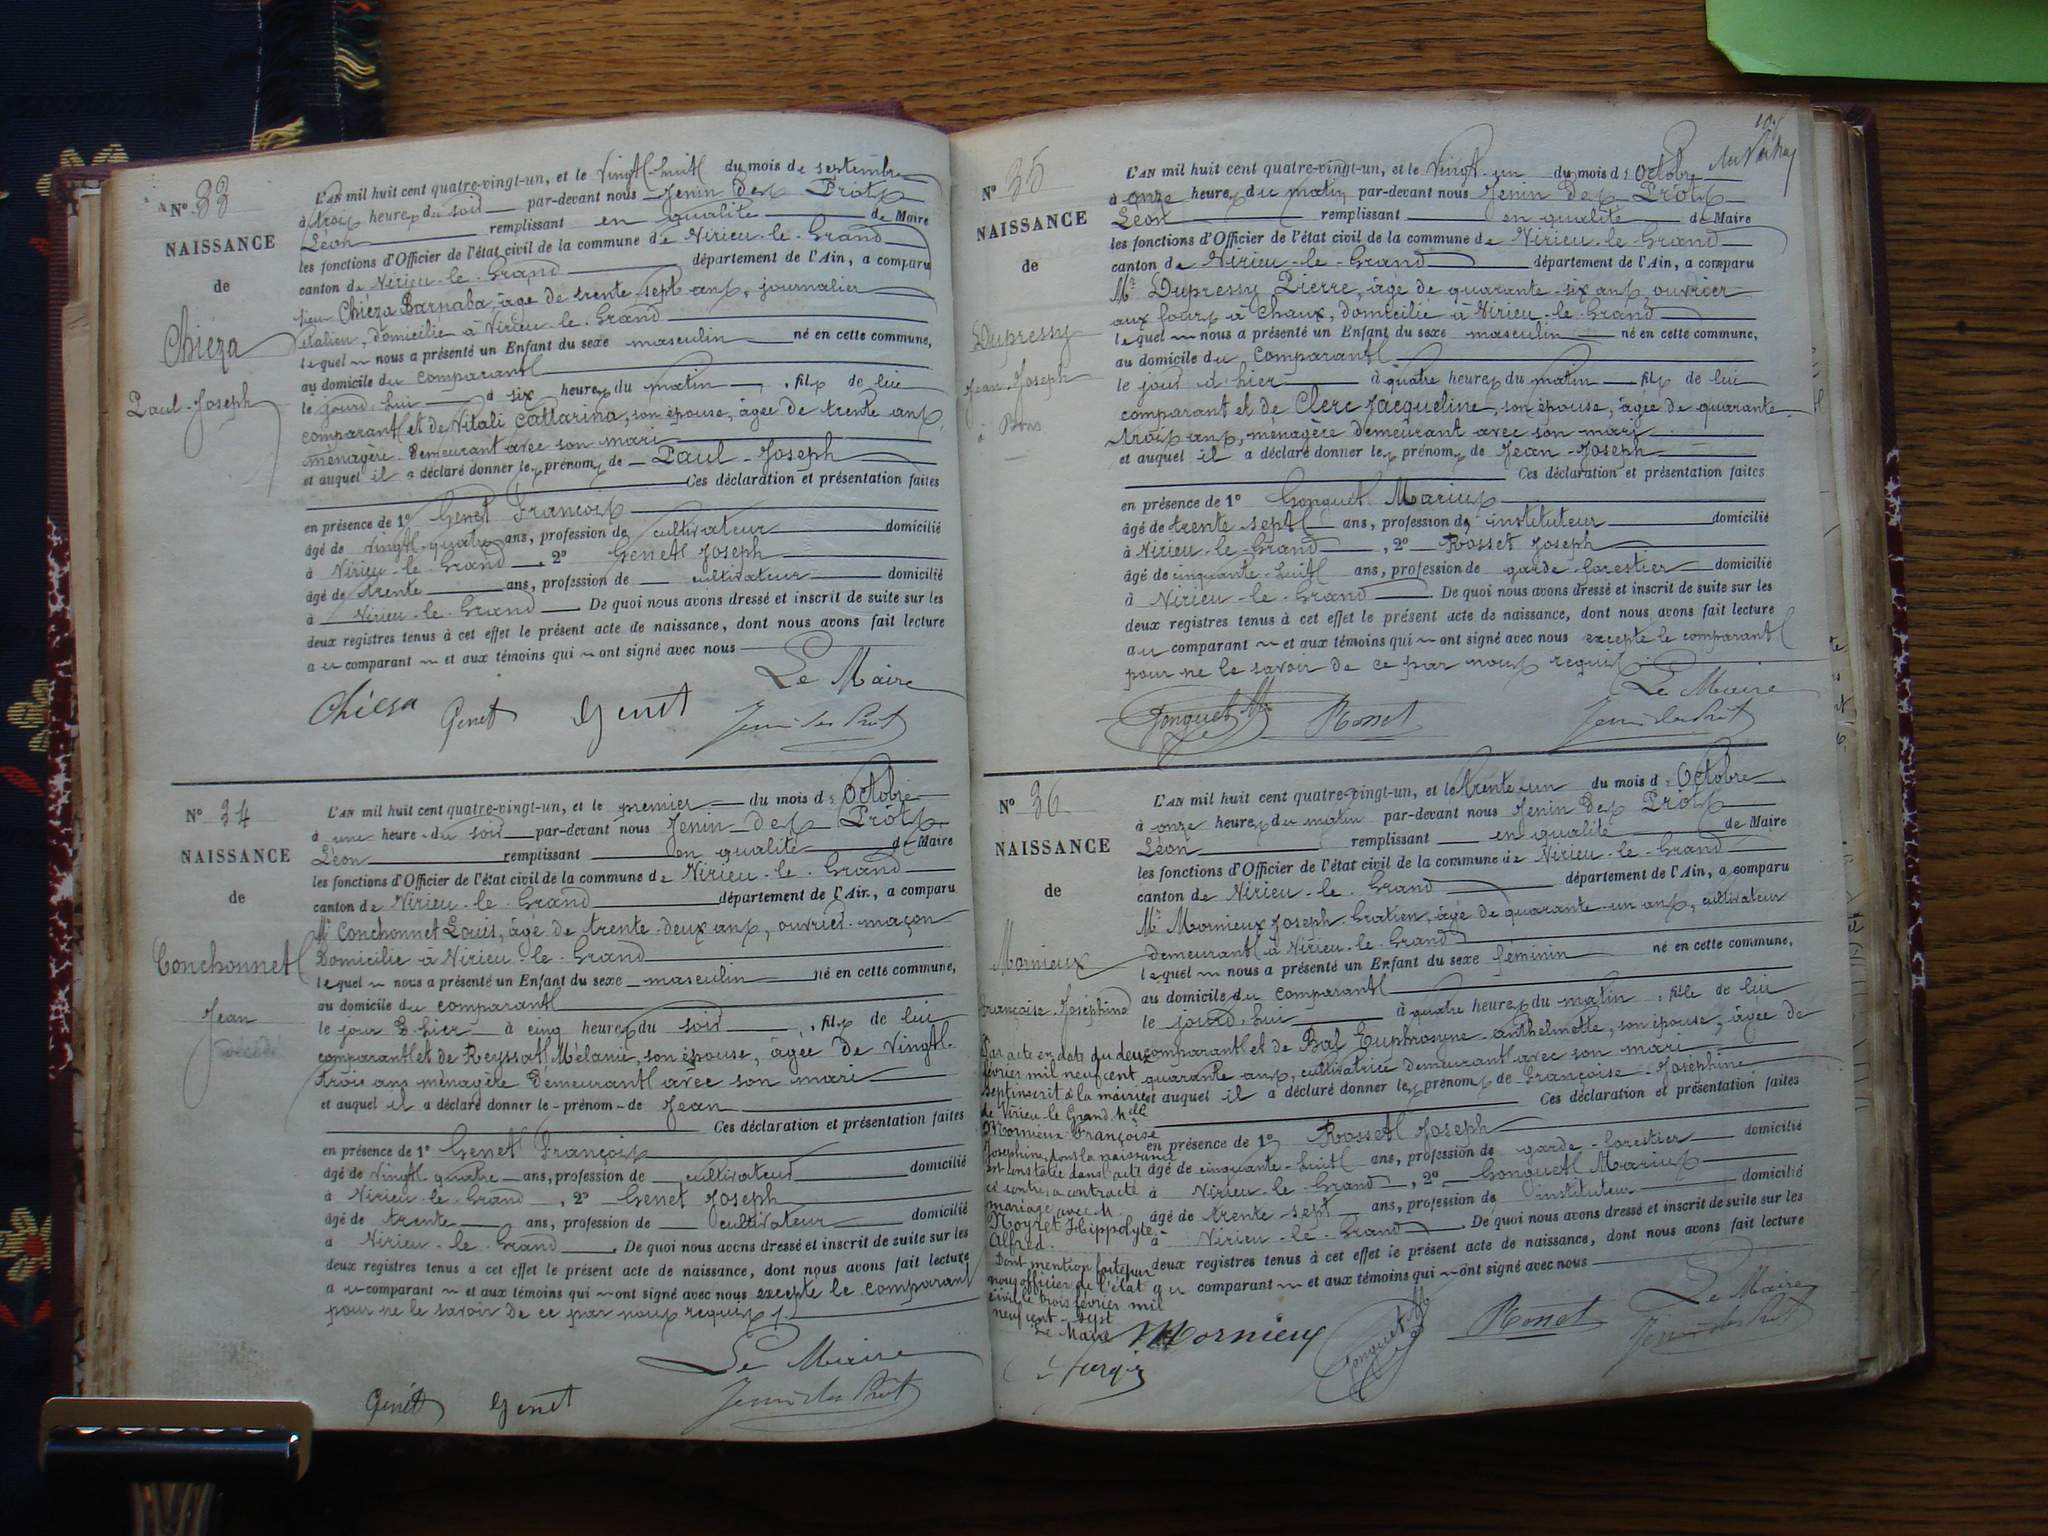 N° 33
NAISSANCE
de
Chiéza
Paul-Joseph
L'AN mil huit cent quatre-vingt-un, et le vingt-huit du mois de septembre
à trois heures du soir par-devant nous Jenin des Prots
Léon remplissant en qualité de Maire
les fonctions d'Officier de l'état civil de la commune de Virieu-le-Grand
canton de Virieu-le-Grand département de l'Ain, a comparu
sieur Chiéza Barnaba, âgé de trente-sept ans, journalier
italien, domicilié à Virieu-le-Grand
lequel nous a présenté un Enfant du sexe masculin né en cette commune,
au domicile du comparant
le jourd'hui à six heures du matin, fils de lui
comparant et de Vitali Cattarina, son épouse, âgée de trente ans,
ménagère demeurant avec son mari
et auquel il a déclaré donner les prénoms de Paul-Joseph
Ces déclaration et présentation faites
en présence de 1° Genet François
âgé de vingt-quatre ans, profession de cultivateur domicilié
à Virieu-le-Grand, 2° Genet Joseph
âgé de trente ans, profession de cultivateur domicilié
à Virieu-le-Grand De quoi nous avons dressé et inscrit de suite sur les
deux registres tenus à cet effet le présent acte de naissance, dont nous avons fait lecture
au comparant et aux témoins qui ont signé avec nous
Le Maire
Chiesa Genet Genet Jenin des Prots
N° 34
NAISSANCE
de
Conchonnet
Jean
décédé
L'AN mil huit cent quatre-vingt-un, et le premier du mois d'Octobre
à une heure du soir par-devant nous Jenin des Prots
Léon remplissant en qualité de Maire
les fonctions d'Officier de l'état civil de la commune de Virieu-le-Grand
canton de Virieu-le-Grand département de l'Ain, a comparu
Mr Conchonnet Louis, âgé de trente-deux ans, ouvrier-maçon
Domicilié à Virieu-le-Grand
lequel nous a présenté un Enfant du sexe masculin né en cette commune,
au domicile du comparant
le jour d'hier à cinq heures du soir, fils de lui
comparant et de Reyssat Mélanie, son épouse, âgée de vingt-
trois ans ménagère demeurant avec son mari
et auquel il a déclaré donner le prénom de Jean
Ces déclaration et présentation faites
en présence de 1° Genet François
âgé de vingt-quatre ans, profession de cultivateur domicilié
à Virieu-le-Grand, 2° Genet Joseph
âgé de trente ans, profession de cultivateur domicilié
à Virieu-le-Grand. De quoi nous avons dressé et inscrit de suite sur les
deux registres tenus à cet effet le présent acte de naissance, dont nous avons fait lecture
au comparant et aux témoins qui ont signé avec nous excepté le comparant
pour ne le savoir de ce par nous requis
Le Maire
Genet Genet Jenin des Prots
N° 35
NAISSANCE
de
Dupressy
Jean-Joseph
L'AN mil huit cent quatre-vingt-un, et le vingt-un du mois d'Octobre
à onze heures du matin par-devant nous Jenin des Prots
Léon remplissant en qualité de Maire
les fonctions d'Officier de l'état civil de la commune de Virieu-le-Grand
canton de Virieu-le-Grand département de l'Ain, a comparu
Mr Dupressy Pierre, âgé de quarante-six ans ouvrier
aux fours à chaux, domicilié à Virieu-le-Grand
lequel nous a présenté un Enfant du sexe masculin né en cette commune,
au domicile du comparant
le jour d'hier à quatre heures du matin fils de lui
comparant et de Clerc Jacqueline, son épouse, âgée de quarante-
trois ans, ménagère demeurant avec son mari
et auquel il a déclaré donner les prénoms de Jean-Joseph
Ces déclaration et présentation faites
en présence de 1° Gonguet Marius
âgé de trente-sept ans, profession d'instituteur domicilié
à Virieu-le-Grand, 2° Rosset Joseph
âgé de cinquante-huit ans, profession de garde-forestier domicilié
à Virieu-le-Grand. De quoi nous avons dressé et inscrit de suite sur les
deux registres tenus à cet effet le présent acte de naissance, dont nous avons fait lecture
au comparant et aux témoins qui ont signé avec nous excepté le comparant
pour ne le savoir de ce par nous requis
Le Maire
Gonguet M Rosset Jenin des Prots
N° 36
NAISSANCE
de
Mornieux
Françoise-Joséphine
Par acte en date du deux
février mil neuf cent
sept inscrit à la mairie
de Virieu-le-Grand Melle
Mornieux Françoise
Joséphine, dont la naissance
est constatée dans l'acte
ci contre, a contracté
mariage avec M.
Noyret Hippolyte-
Alfred.
Dont mention faite par
nous officier de l'état
civil le trois février mil
neuf cent-sept
Le Maire
L'AN mil huit cent quatre-vingt-un, et le trente-un du mois d'Octobre
à onze heures du matin par-devant nous Jenin des Prots
Léon remplissant en qualité de Maire
les fonctions d'Officier de l'état civil de la commune de Virieu-le-Grand
canton de Virieu-le-Grand département de l'Ain, a comparu
Mr Mornieux Joseph-Gratien, âgé de quarante-un ans, cultivateur
demeurant à Virieu-le-Grand
lequel nous a présenté un Enfant du sexe féminin né en cette commune,
au domicile du comparant
le jourd'hui à quatre heures du matin, fille de lui
comparant et de Bal Euphrosyne-Anthelmette, son épouse, âgée de
quarante ans, cultivatrice demeurant avec son mari
et auquel il a déclaré donner les prénoms de Françoise-Joséphine
Ces déclaration et présentation faites
en présence de 1° Rosset Joseph
âgé de cinquante-huit ans, profession de garde-forestier domicilié
à Virieu-le-Grand, 2° Gonguet Marius
âgé de trente sept ans, profession d'instituteur domicilié
à Virieu-le-Grand. De quoi nous avons dressé et inscrit de suite sur les
deux registres tenus à cet effet le présent acte de naissance, dont nous avons fait lecture
au comparant et aux témoins qui ont signé avec nous
Le Maire
Mornieux Gonguet M Rosset Jenin des Prots